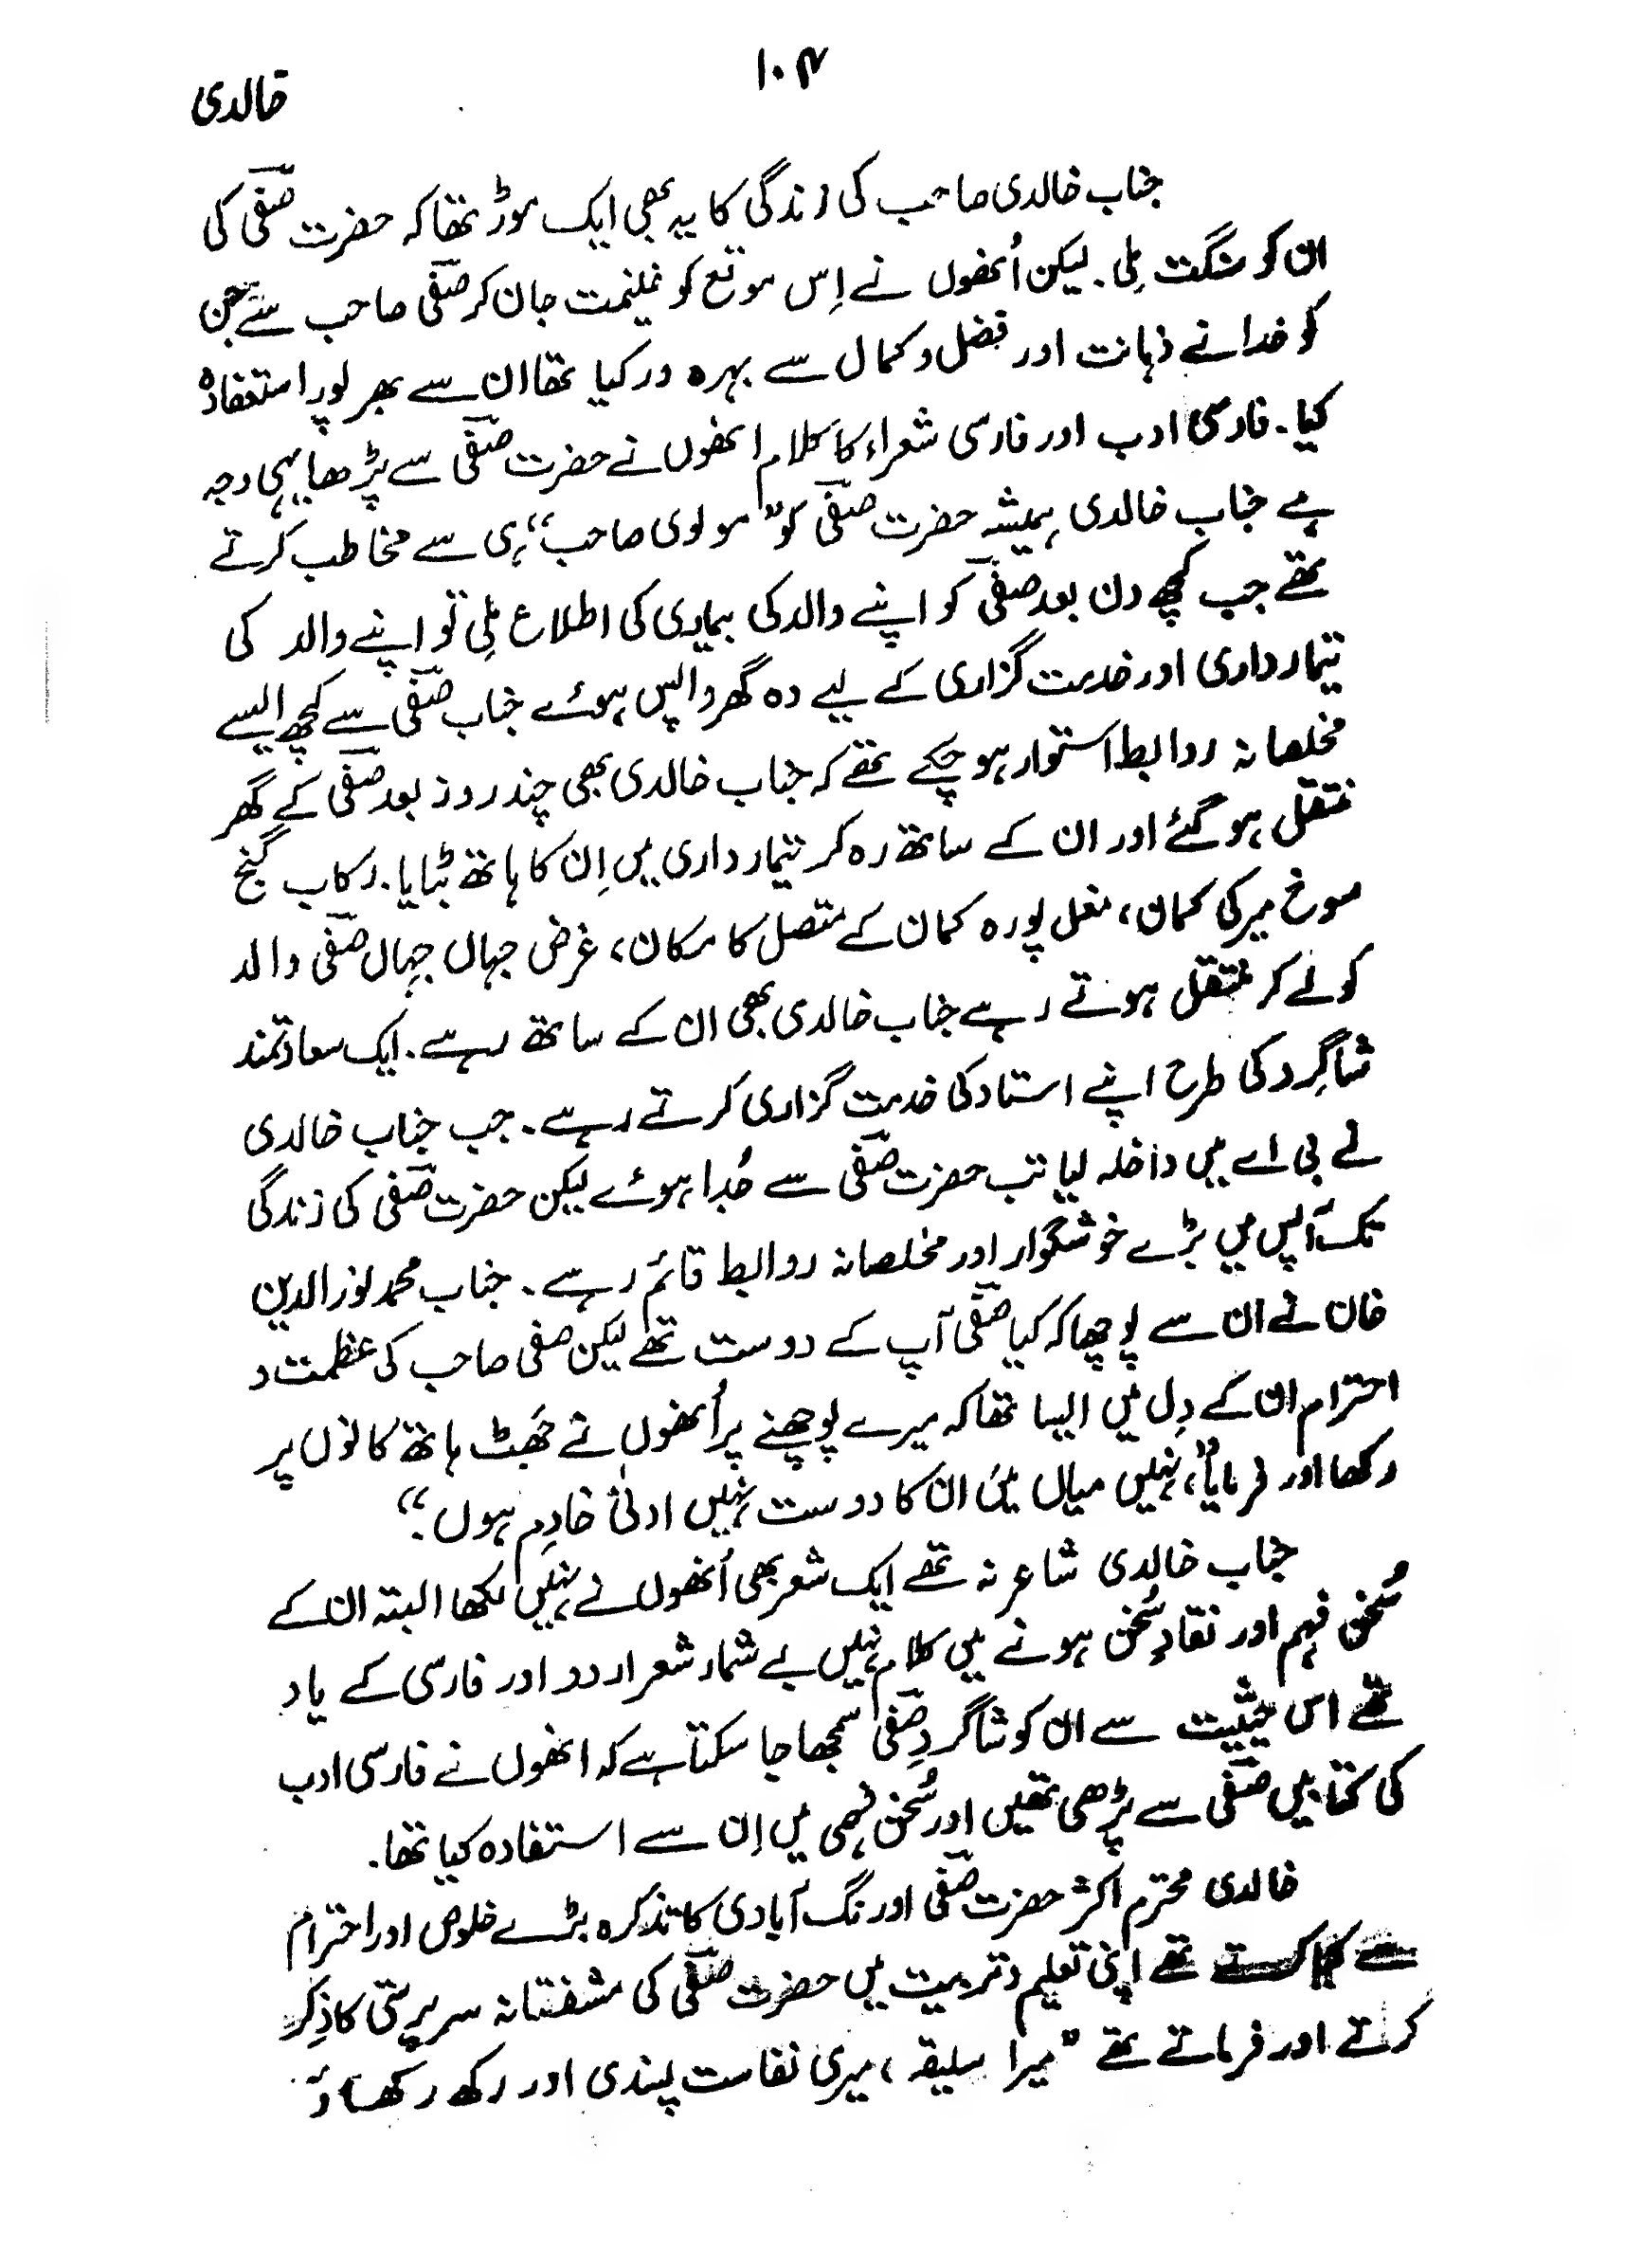 ۱۰۴
خالدی
جناب خالدی صاحب کی زندگی کا یہ بھی ایک موڑ تھا کہ حضرت صفیؔ کی
ان کو سنگت ملی۔ لیکن اُنھوں نے اِس موقع کو غنیمت جان کر صفیؔ صاحب سے جن
کو خدا نے ذہانت اور فضل و کمال سے بہرہ ور کیا تھا ان سے بھرپور استفادہ
کیا۔ فارسی ادب اور فارسی شعراء کا کلام انھوں نے حضرت صفیؔ سے پڑھا یہی وجہ
ہے جناب خالدی ہمیشہ حضرت صفیؔ کو ”مولوی صاحب“ ہی سے مخاطب کرتے
تھے جب کچھ دن بعد صفیؔ کو اپنے والد کی بیماری کی اطلاع ملی تو اپنے والد کی
تیمارداری اور خدمت گزاری کے لیے وہ گھر واپس ہوئے جناب صفیؔ سے کچھ ایسے
مخلصانہ روابط استوار ہو چکے تھے کہ جناب خالدی بھی چند روز بعد صفیؔ کے گھر
منتقل ہو گئے اور ان کے ساتھ رہ کر تیمارداری میں اِن کا ہاتھ بٹایا۔ رکاب گنج
سوخ میر کی کمان، مغل پورہ کمان کے متصل کا مکان، غرض جہاں جہاں صفیؔ والد
کو لے کر منتقل ہوتے رہے جناب خالدی بھی ان کے ساتھ رہے۔ ایک سعادتمند
شاگرد کی طرح اپنے استاد کی خدمت گزاری کرتے رہے۔ جب جناب خالدی
نے بی اے میں داخلہ لیا تب حضرت صفیؔ سے جُدا ہوئے لیکن حضرت صفیؔ کی زندگی
تک آپس میں بڑے خوشگوار اور مخلصانہ روابط قائم رہے۔ جناب محمد نورالدین
خان نے ان سے پوچھا کہ کیا صفیؔ آپ کے دوست تھے لیکن صفی صاحب کی عظمت و
احترام ان کے دِل میں ایسا تھا کہ میرے پوچھنے پر اُنھوں نے جَھٹ ہاتھ کانوں پر
رکھا اور فرمایا”، نہیں میاں میں ان کا دوست نہیں ادنیٰ خادِم ہوں۔“
جناب خالدی شاعر نہ تھے ایک شعر بھی اُنھوں نے نہیں لکھا البتہ ان کے
سُخن فہم اور نقادِ سُخن ہونے میں کلام نہیں بے شمار شعر اردو اور فارسی کے یاد
تھے اس حیثیت سے ان کو شاگردِ صفیؔ سمجھا جا سکتا ہے کہ انھوں نے فارسی ادب
کی کتابیں صفیؔ سے پڑھی تھیں اور سُخن فہمی میں اِن سے استفادہ کیا تھا۔
خالدی محترم اکثر حضرت صفیؔ اورنگ آبادی کا تذکرہ بڑے خلوص اور احترام
سے کیا کرتے تھے اپنی تعلیم و تربیت میں حضرت صفیؔ کی مشفقانہ سرپرستی کا ذِکر
کرتے اور فرماتے تھے ”میرا سلیقہ، میری نفاست پسندی اور رکھ رکھاؤ